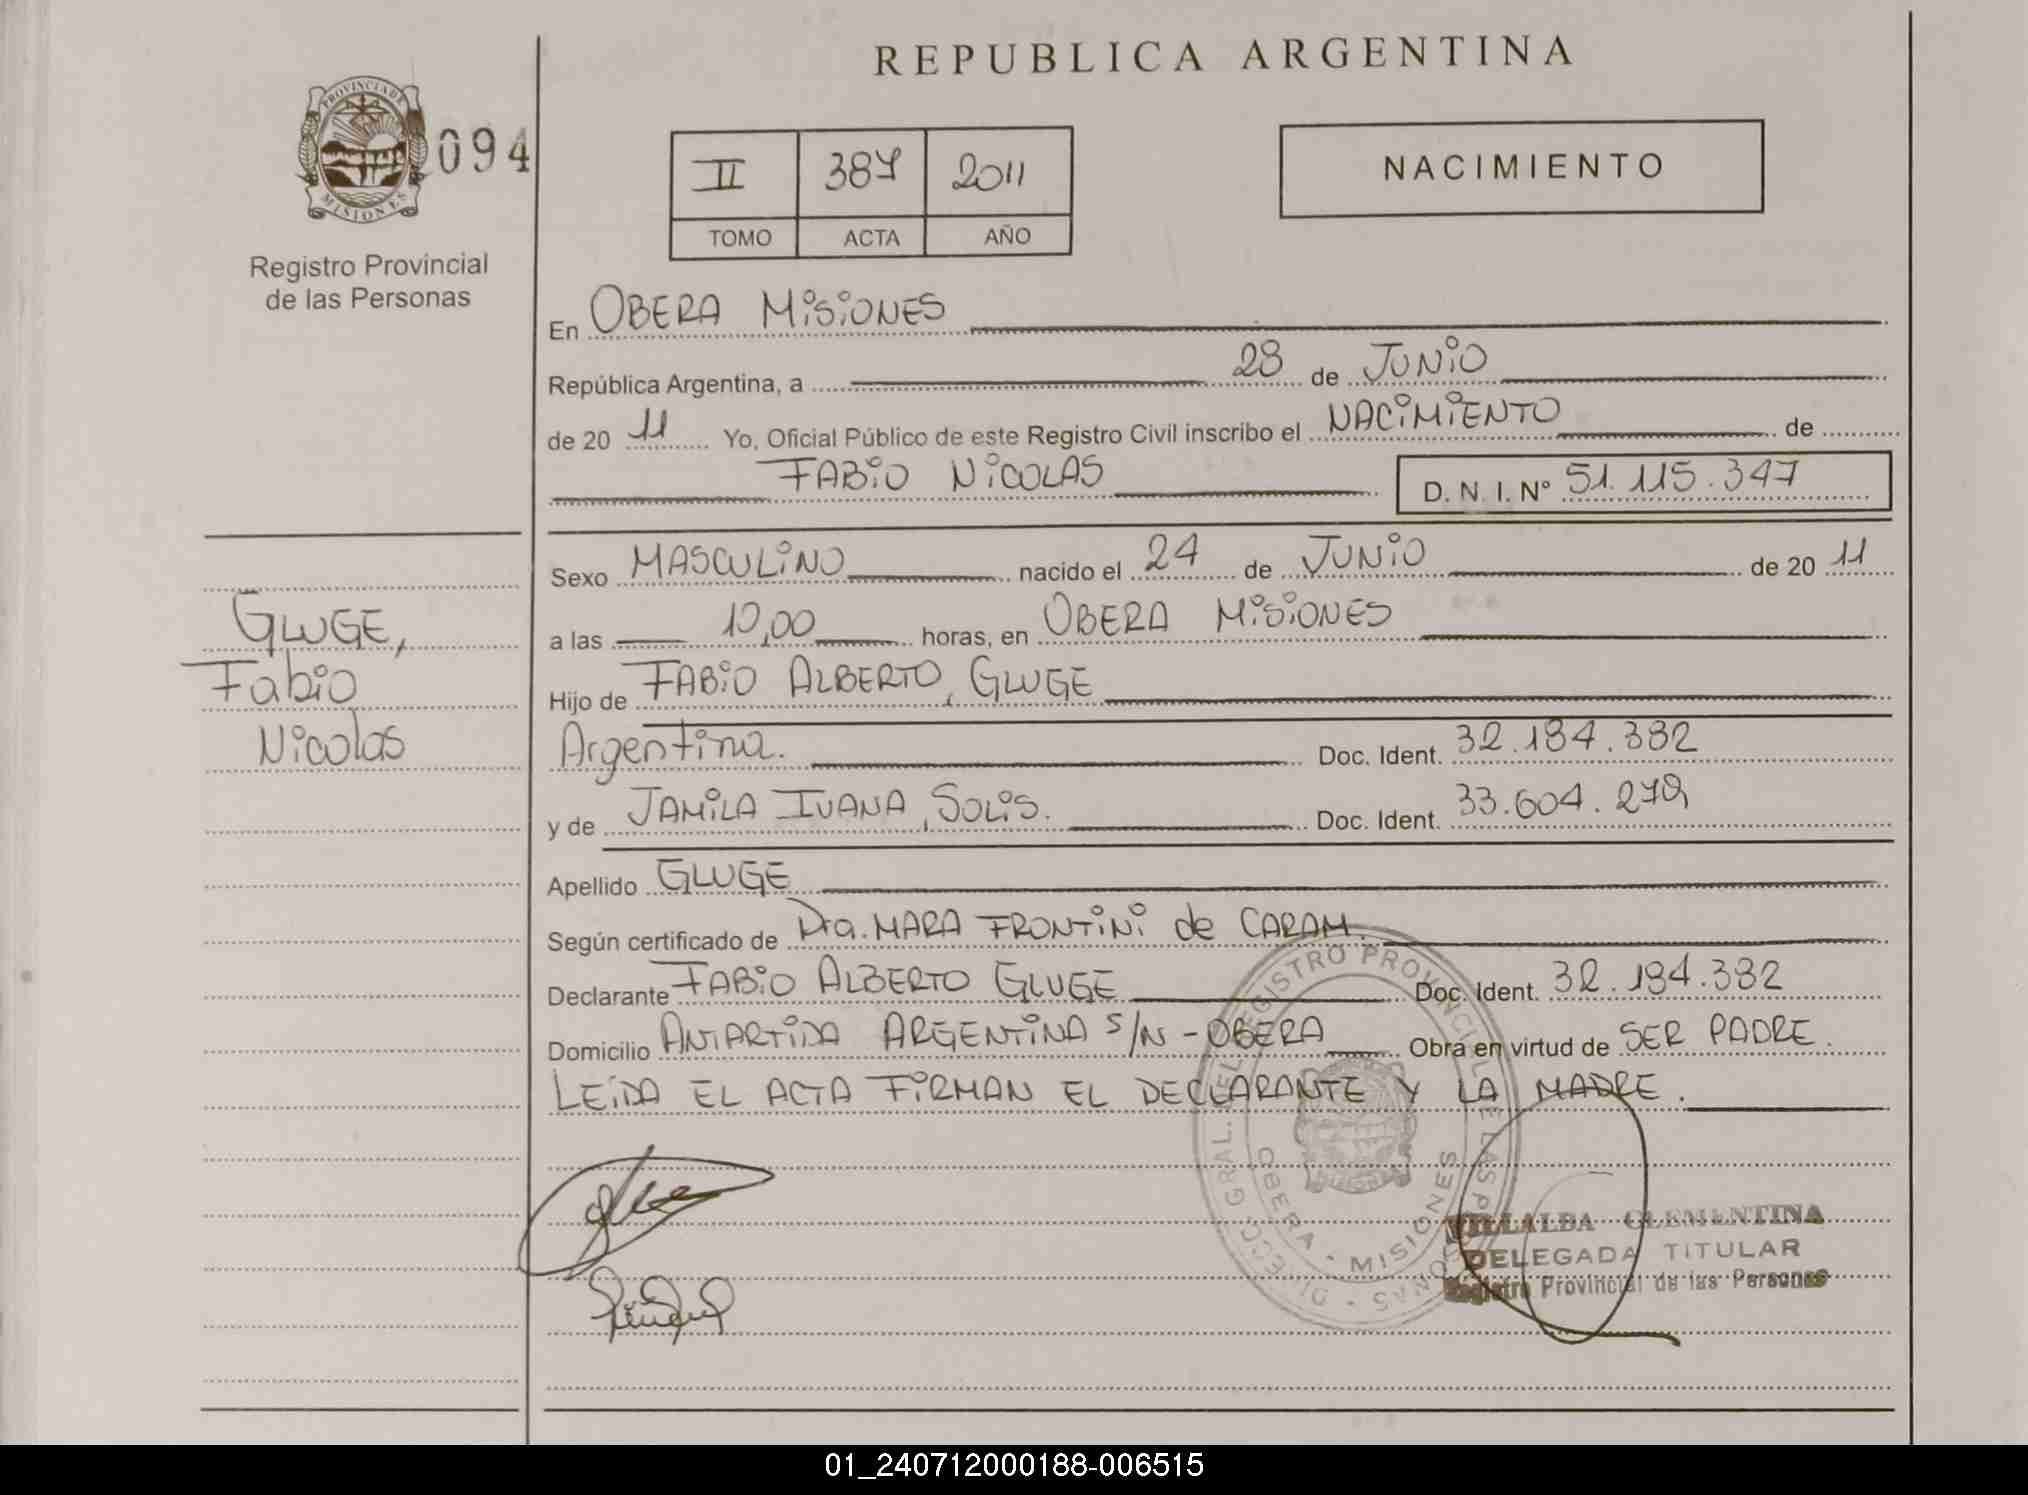 REPUBLICA ARGENTINA
PROVINCIA DE
MISIONES
094
Registro Provincial
de las Personas
II 387 2011
TOMO ACTA AÑO
NACIMIENTO
En OBERA MISIONES
República Argentina, a 28 de JUNIO
de 20 11 Yo, Oficial Público de este Registro Civil inscribo el NACIMIENTO de
FABIO NICOLAS D. N. I. Nº 51.115.347
Sexo MASCULINO nacido el 24 de JUNIO de 20 11
a las 10,00 horas, en OBERA MISIONES
Hijo de FABIO ALBERTO, GLUGE
Argentina. Doc. Ident. 32.184.382
y de JAMILA IVANA, SOLIS. Doc. Ident. 33.604.279
Apellido GLUGE
Según certificado de Dra. MARA FRONTINI de CARAM.
Declarante FABIO ALBERTO GLUGE Doc. Ident. 32.184.382
Domicilio ANTARTIDA ARGENTINA S/N - OBERA Obra en virtud de SER PADRE.
LEIDA EL ACTA FIRMAN EL DECLARANTE Y LA MADRE.
GLUGE,
Fabio
Nicolas
DIRECC. GRAL. DEL REGISTRO PROVINCIAL DE LAS PERSONAS
OBERA - MISIONES
VILLALBA CLEMENTINA
DELEGADA TITULAR
Registro Provincial de las Personas
01_240712000188-006515